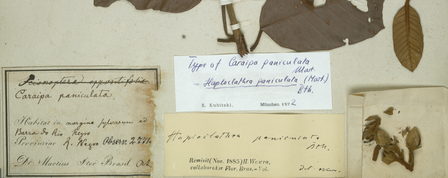 Type of Caraipa paniculata
Mart.
= Haploclathra paniculata (Mart.)
Bth.
K. Kubitzki, München 1972
Caraipa paniculata
Habitat in margine sylvarum ad
Barra do Rio Negro
Provinciae R. Negro Observ. 277
Dr. Martius Iter Brasil. Oct.
Haploclathra paniculata
Bth.
Remisit Nov. 1885 H. Wawra,
collaborator Flor. Bras. Vol.